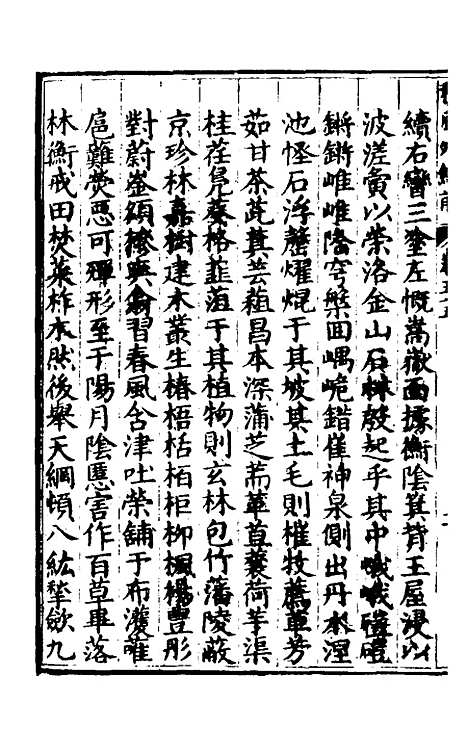 續右彎三塗左慨嵩嶽面據衡陰箕背王屋浸以
波溠夤以榮洛金山石林殷起乎其中峨峨磑磑
鏘鏘崔崔隆穹槃回嵎峗錯崔神泉側出丹水涅
池怪石浮磬燿焜于其坡其土毛則榷牧薦草芳
茹甘荼茈萁芸蒩昌本深蒲芝荋菫荁蘘荷芋渠
桂荏鳧葵格韮菹于其植物則玄林包竹藩陵蔽
京珍林嘉樹建木叢生椿梧栝栢柜柳楓楊豊彤
對蔚崟頟 㸑翕習春風含津吐榮鋪于布濩蓶
扈蘳熒惡可殫形至于陽月陰慝害作百草畢落
林衡戒田焚萊柞木然後舉天網頓八紘摯斂九